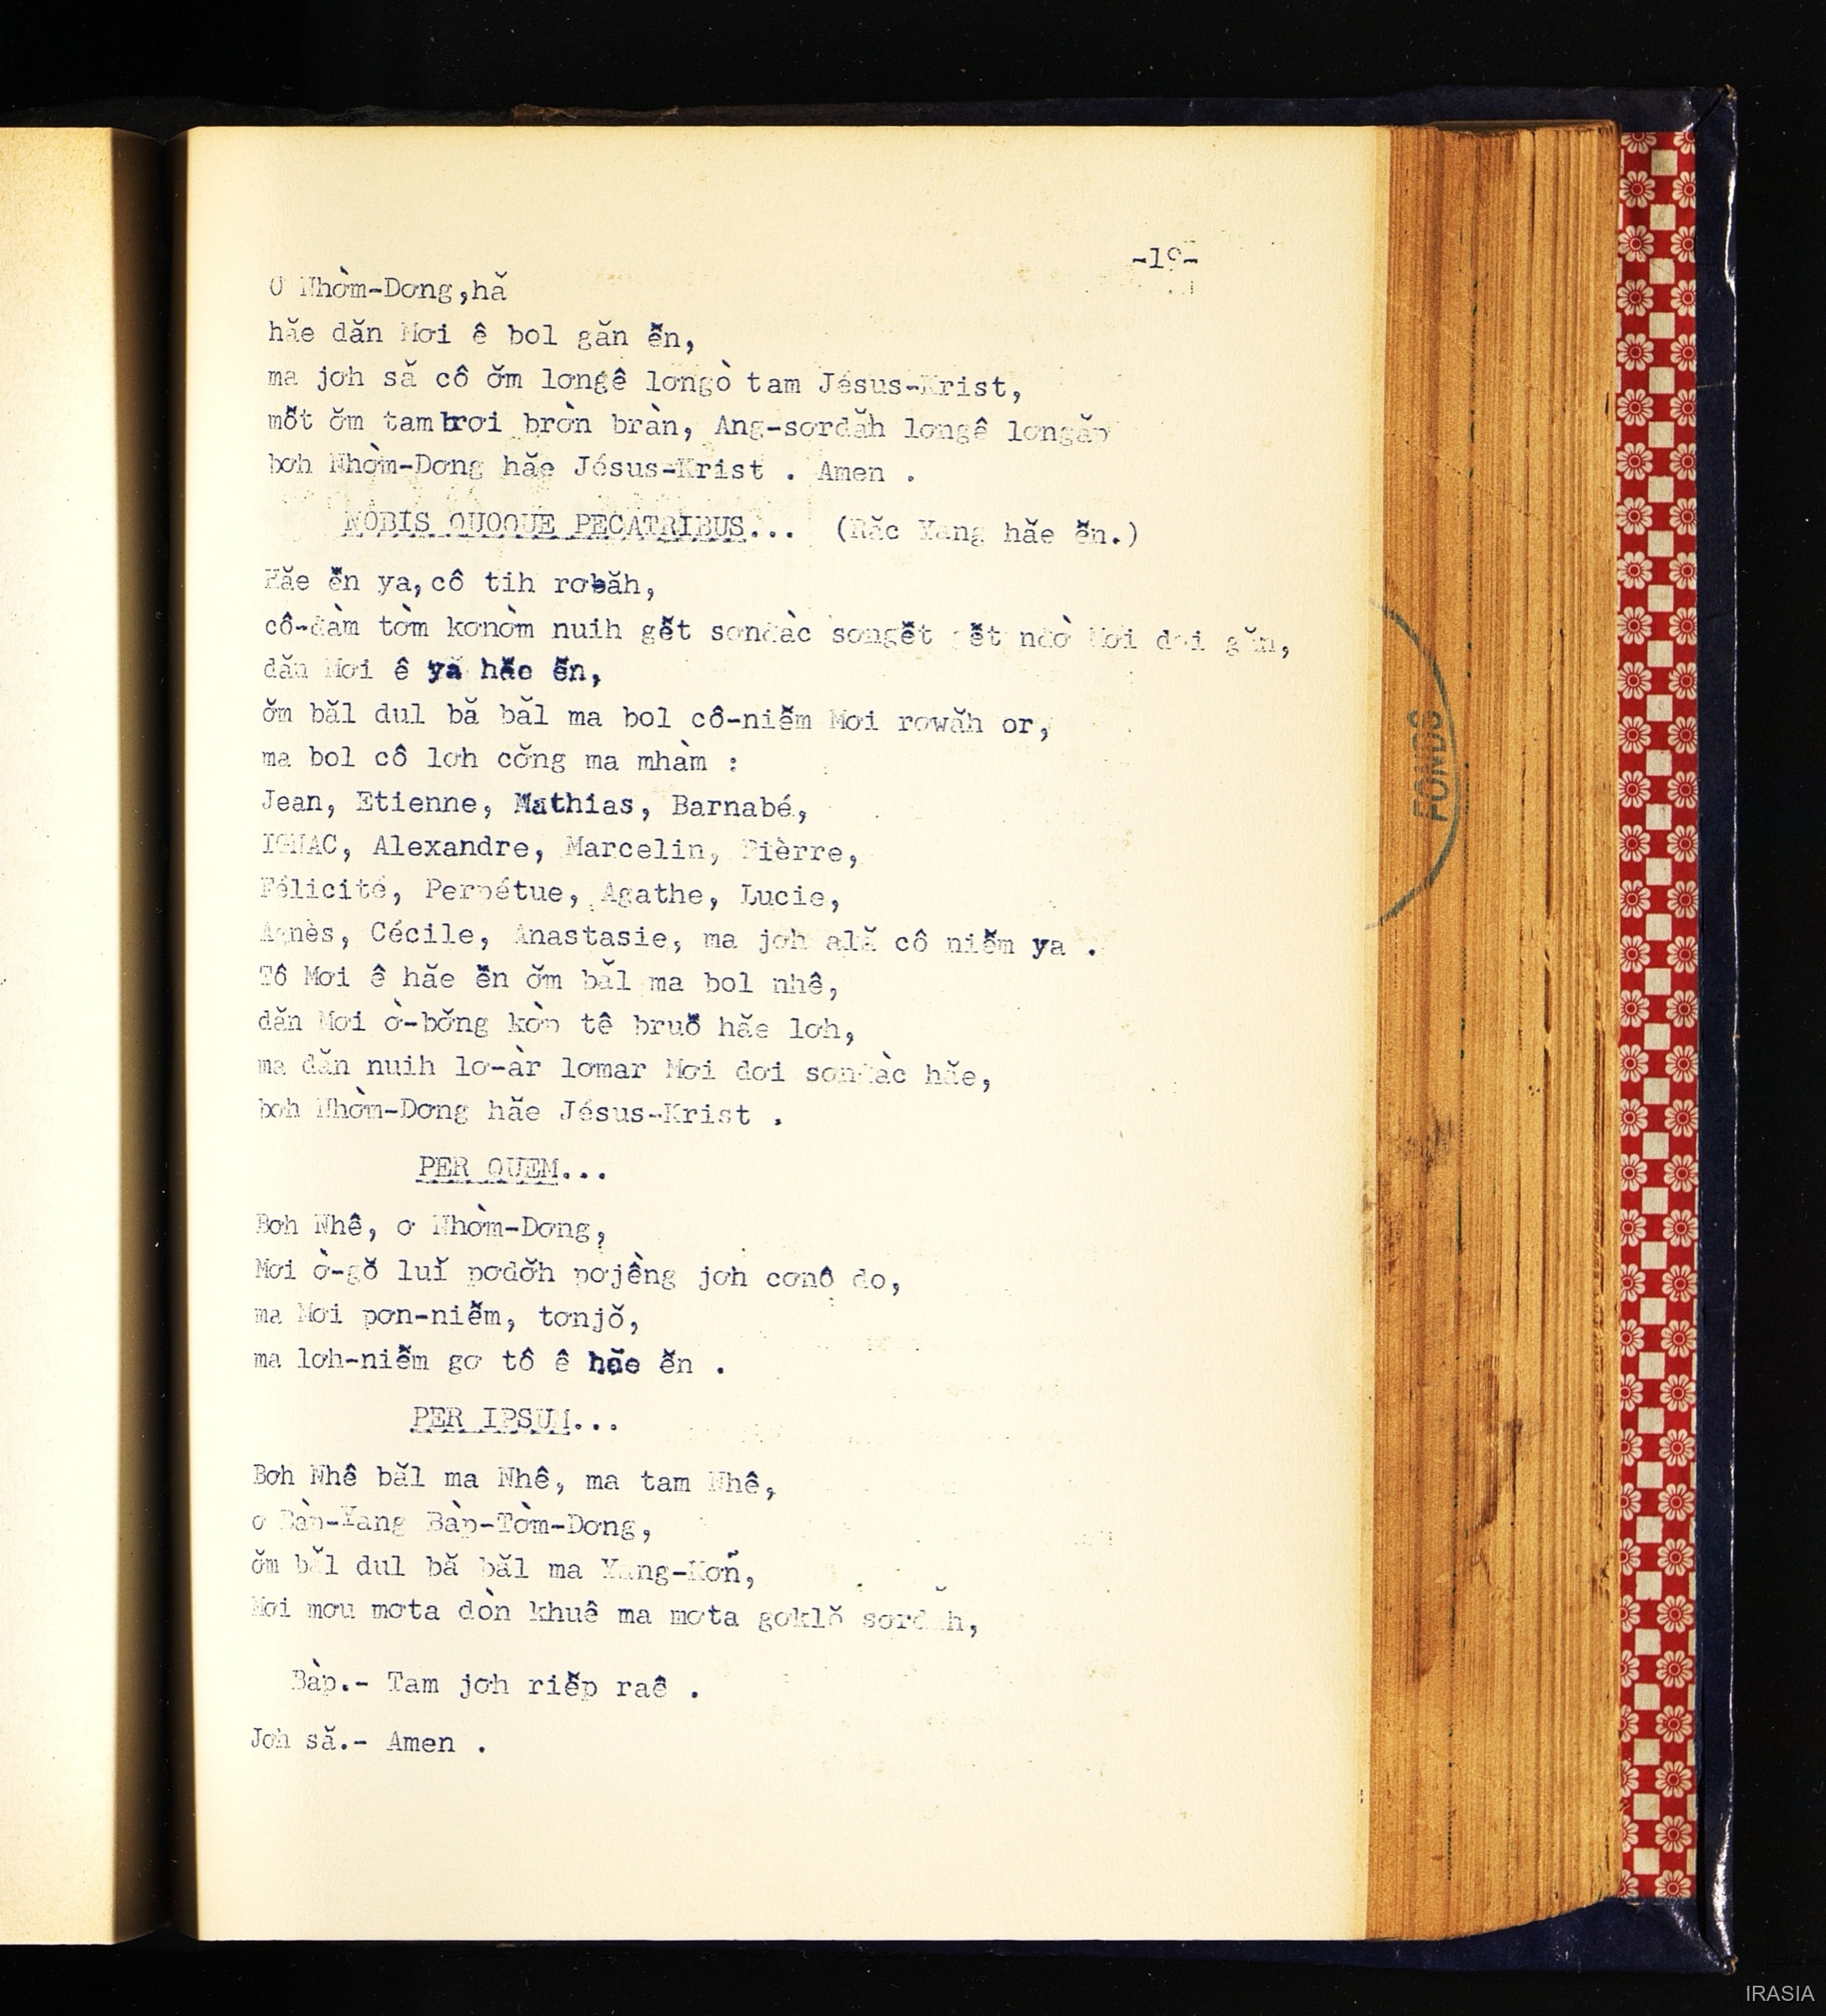 -19-
Ơ Nhờm-Dơng,hă
hăe dăn Mơi ê bol găn ĕ̀n,
ma jơh să cô ơ̆m lơngê lơngò tam Jésus-Krist,
mŏ̂t ơ̆m tam trơi brờn bràn, Ang-sơrdăh lơngê lơngăp
bơh Nhờm-Dơng hăe Jésus-Krist . Amen .
NOBIS QUOQUE PECATRIBUS... (Răc Yang hăe ĕ̂n.)
Hăe ĕ̂n ya, cô tih rơbăh,
cô-dàm tờm kơnờm nuih gĕ̂t sơndàc sơngĕ̂t gĕ̂t ndờ Mơi dơi găn,
dăn Mơi ê ya hăe ĕ̂n,
ơ̆m băl dul bă băl ma bol cô-niĕ̂m Mơi rơwăh or,
ma bol cô lơh cơ̆ng ma mhàm :
Jean, Etienne, Mathias, Barnabé,
IGNAC, Alexandre, Marcelin, Pièrre,
Félicité, Perpétue, Agathe, Lucie,
Agnès, Cécile, Anastasie, ma jơh ală cô niĕ̂m ya .
Tô Mơi ê hăe ĕ̂n ơ̆m băl ma bol nhê,
dăn Mơi ờ-bơ̆ng kờp tê bruŏ̂ hăe lơh,
ma dăn nuih lơ-àr lơmar Mơi dơi sơndàc hăe,
bơh Nhờm-Dơng hăe Jésus-Krist .
PER QUEM...
Bơh Nhê, ơ Nhờm-Dơng,
Mơi ờ-gŏ luĭ pơdơ̆h pơjềng jơh cơnô do,
ma Mơi pơn-niĕ̂m, tơnjŏ,
ma lơh-niĕ̂m gơ tô ê hăe ĕ̂n .
PER IPSUM...
Bơh Nhê băl ma Nhê, ma tam Nhê,
ơ Bàp-Yang Bàp-Tờm-Dơng,
ơ̆m băl dul bă băl ma Yang-Kơñ,
Mơi mơu mơta dòn khuê ma mơta gơklŏ sơrdăh,
Bàp.- Tam jơh riĕ̂p raê .
Jơh să.- Amen .
FONDS
IRASIA